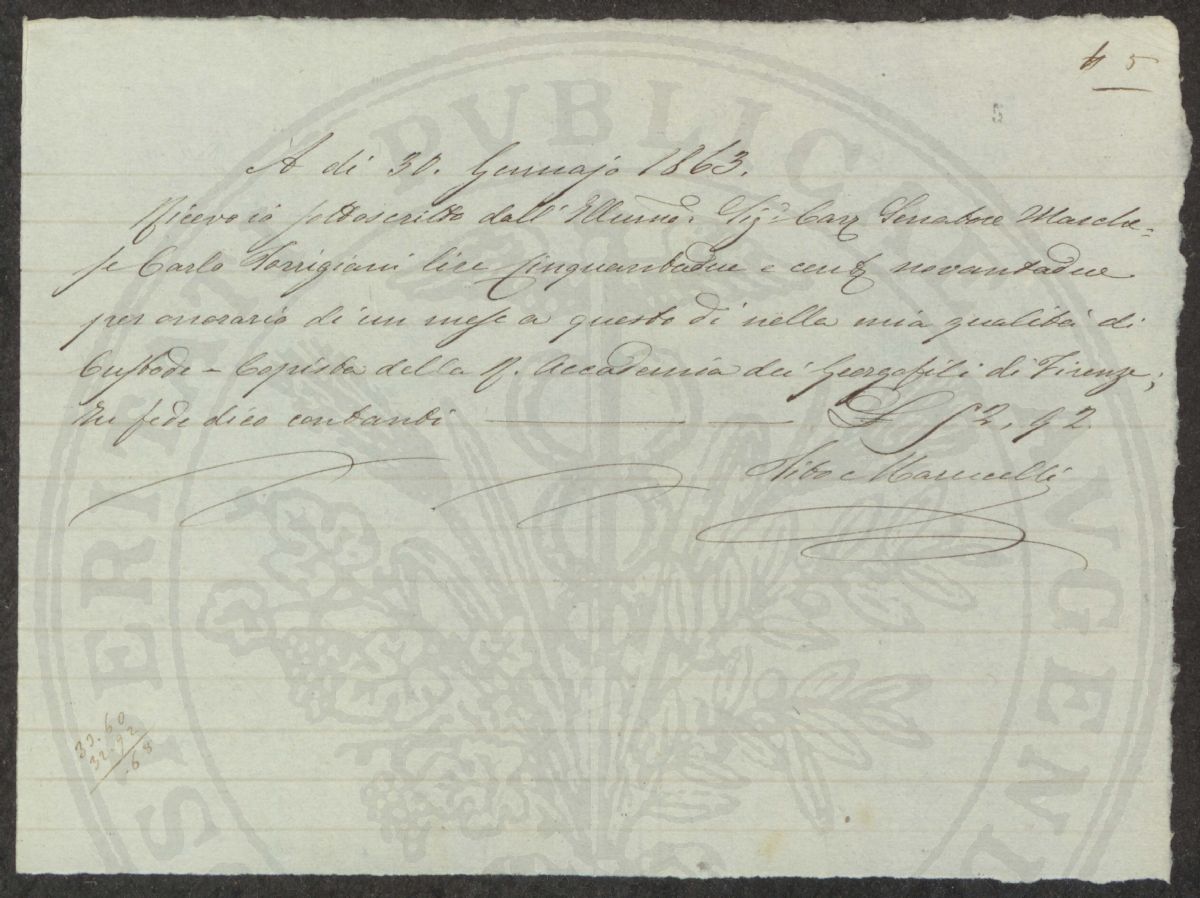 5
5
A di 30. Gennajo 1863.
Ricevo io sottoscritto dall' Illmo. Sig. Cav Senatore Marche=
se Carlo Torrigiani lire Cinquantadue e cent novantadue
per onorario di un mese a questo dì nella mia qualità di
Custode - Copista della R. Accademia dei Georgofili di Firenze;
In fede dico contanti L 52, 92
Marucelli
.60
32.92
.68
PUBLICAE